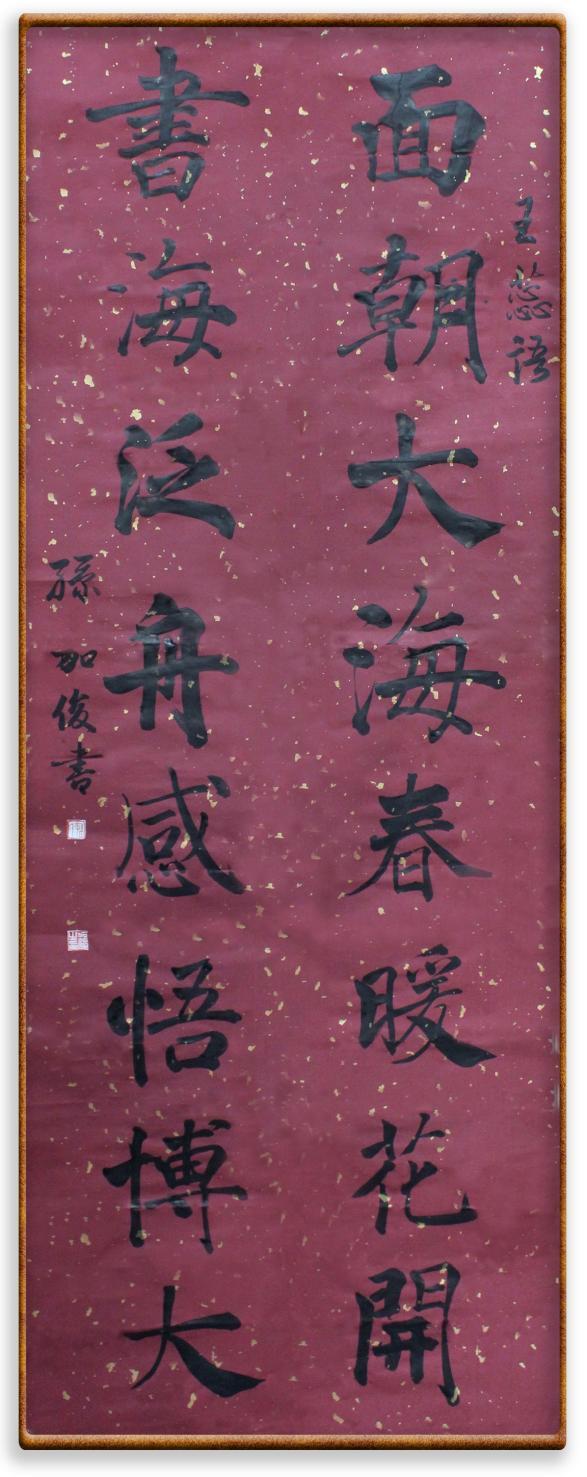 王蕊語
面朝大海春暖花開
書海泛舟感悟博大
孫加俊書